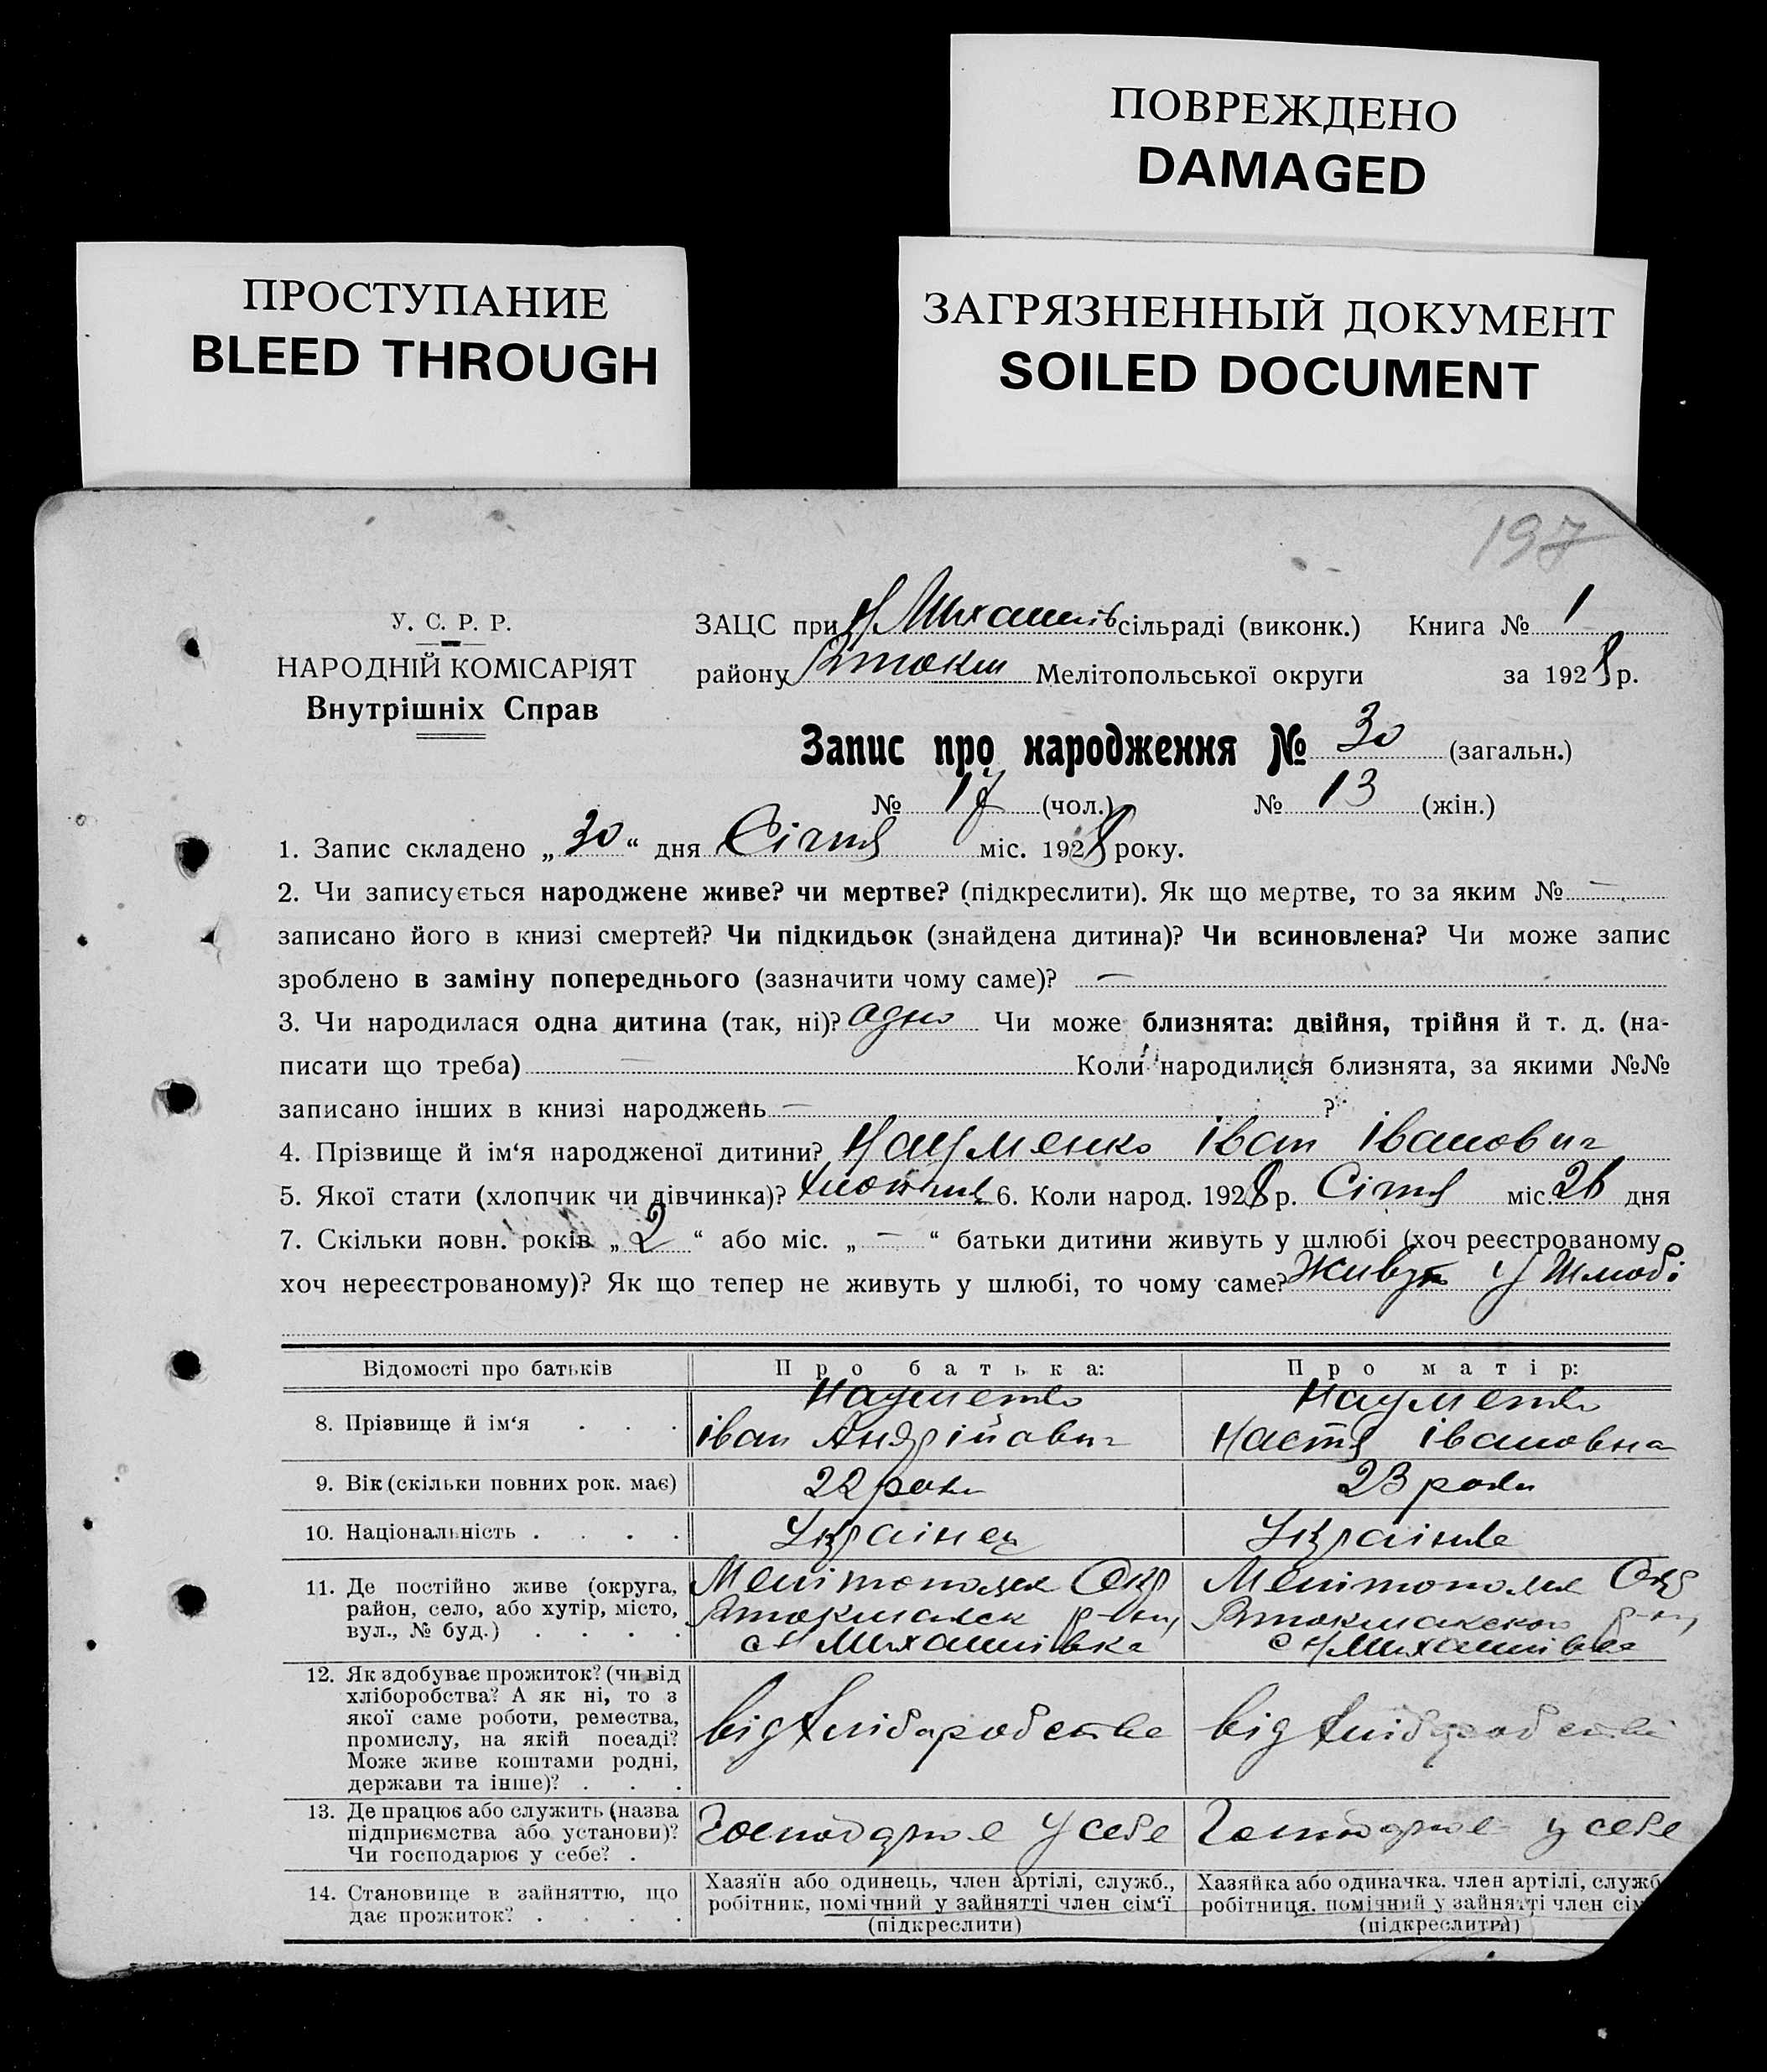 ПОВРЕЖДЕНО
DAMAGED
ПРОСТУПАНИЕ
BLEED THROUGH
ЗАГРЯЗНЕННЫЙ ДОКУМЕНТ
SOILED DOCUMENT
197
У. С. Р. Р.
НАРОДНІЙ КОМІСАРІЯТ
Внутрішніх Справ
ЗАЦС при Н Михайлів сільраді (виконк.) Книга № 1
району Втокм Мелітопольської округи за 1928 р.
Запис про народження № 30 (загальн.)
№ 17 (чол.) № 13 (жін.)
1. Запис складено „30“ дня Січня міс. 1928 року.
2. Чи записується народжене живе? чи мертве? (підкреслити). Як що мертве, то за яким № —
записано його в книзі смертей? Чи підкидьок (знайдена дитина)? Чи всиновлена? Чи може запис
зроблено в заміну попереднього (зазначити чому саме)? —
3. Чи народилася одна дитина (так, ні)? одно Чи може близнята: двійня, трійня й т. д. (на-
писати що треба) — Коли народилися близнята, за якими №№
записано інших в книзі народжень — ?
4. Прізвище й ім‘я народженої дитини? Науменко Іван Іванович
5. Якої стати (хлопчик чи дівчинка)? хлопчик 6. Коли народ. 1928 р. Січня міс. 26 дня
7. Скільки повн. років „2“ або міс. „—“ батьки дитини живуть у шлюбі (хоч реєстрованому
хоч нереєстрованому)? Як що тепер не живуть у шлюбі, то чому саме? Живуть у Шлюбі
Відомості про батьків
Про батька:
Про матір:
8. Прізвище й ім‘я . . .
Науменко
Іван Андрійович
Науменко
Настя Івановна
9. Вік (скільки повних рок. має)
22 роки
23 роки
10. Національність . . . .
Українец
Українка
11. Де постійно живе (округа,
район, село, або хутір, місто,
вул., № буд.) . . . .
Мелітопольск Окр
Втокмакск р-ну
с Н Михайлівка
Мелітопольск Окр
Втокмакского р-ну
с Н Михайлівка
12. Як здобуває прожиток? (чи від
хліборобства? А як ні, то з
якої саме роботи, ремества,
промислу, на якій посаді?
Може живе коштами родні,
держави та інше)? . . .
від хліборобства
від хліборобства
13. Де працює або служить (назва
підприємства або установи)?
Чи господарює у себе? .
Господарює у себе
Господарює у себе
14. Становище в зайняттю, що
дає прожиток? . . . .
Хазяїн або одинець, член артілі, служб.,
робітник, помічний у зайнятті член сім‘ї
(підкреслити)
Хазяйка або одиначка. член артілі, служб
робітниця. помічний у зайнятті член сім
(підкреслити)